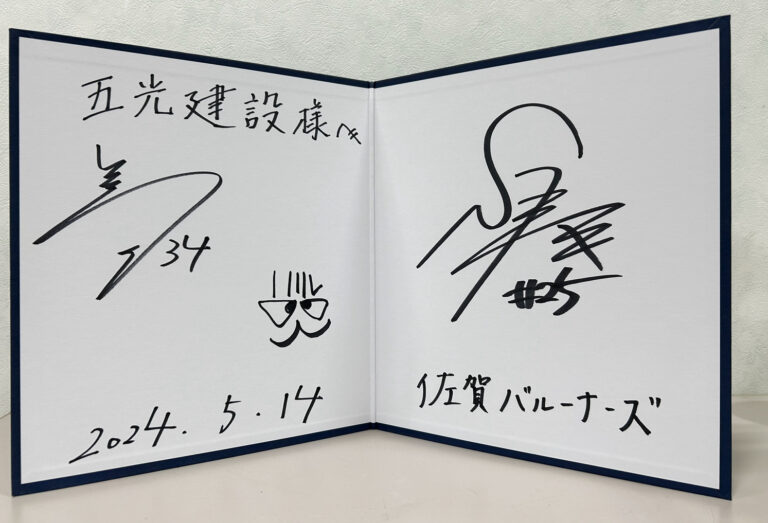 五光建設様へ
34
2024.5.14
#25
佐賀バルーナーズ